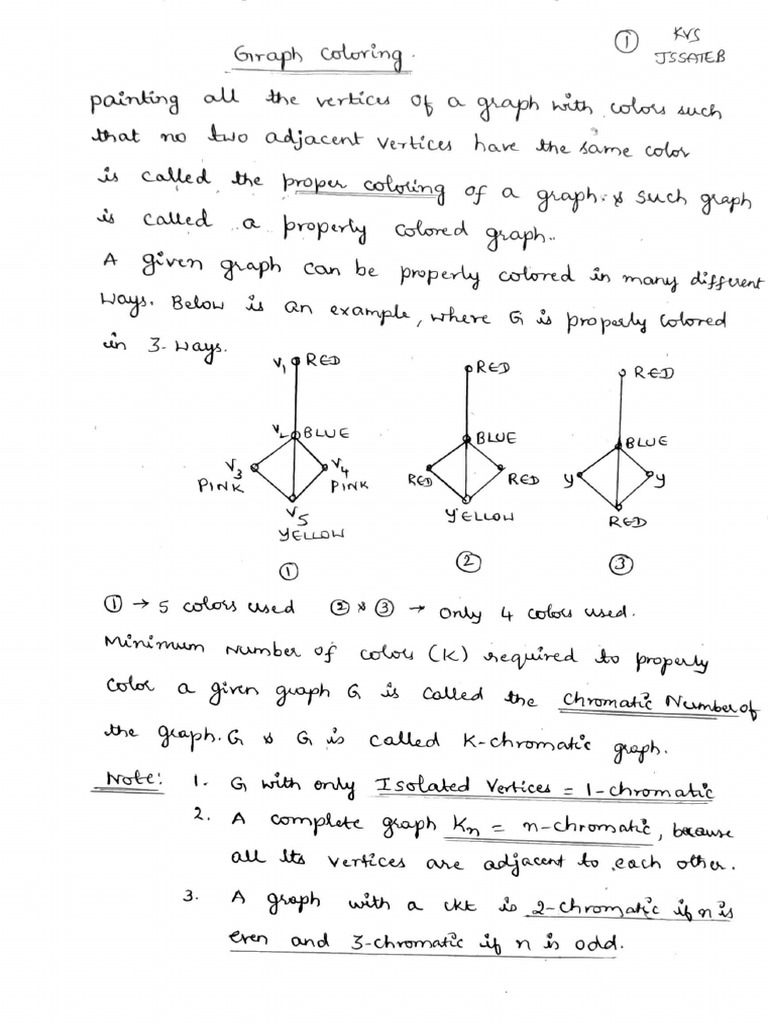 Graph Coloring.
① KVS
JSSATEB
painting all the vertices of a graph with colors such
that no two adjacent vertices have the same color
is called the proper coloring of a graph. & such graph
is called a properly colored graph.
A given graph can be properly colored in many different
ways. Below is an example, where G is properly colored
in 3-ways.
V₁ RED
V₂ BLUE
V₃ PINK
V₄ PINK
V₅ YELLOW
①
RED
BLUE
RED RED
YELLOW
②
RED
BLUE
y y
RED
③
① → 5 colors used ② & ③ → only 4 colors used.
Minimum Number of colors (K) required to properly
color a given graph G is called the Chromatic Number of
the graph. G & G is called K-chromatic graph.
Note: 1. G with only Isolated Vertices = 1-chromatic
2. A complete graph Kn = n-chromatic, because
all its vertices are adjacent to each other.
3. A graph with a ckt is 2-chromatic if n is
even and 3-chromatic if n is odd.